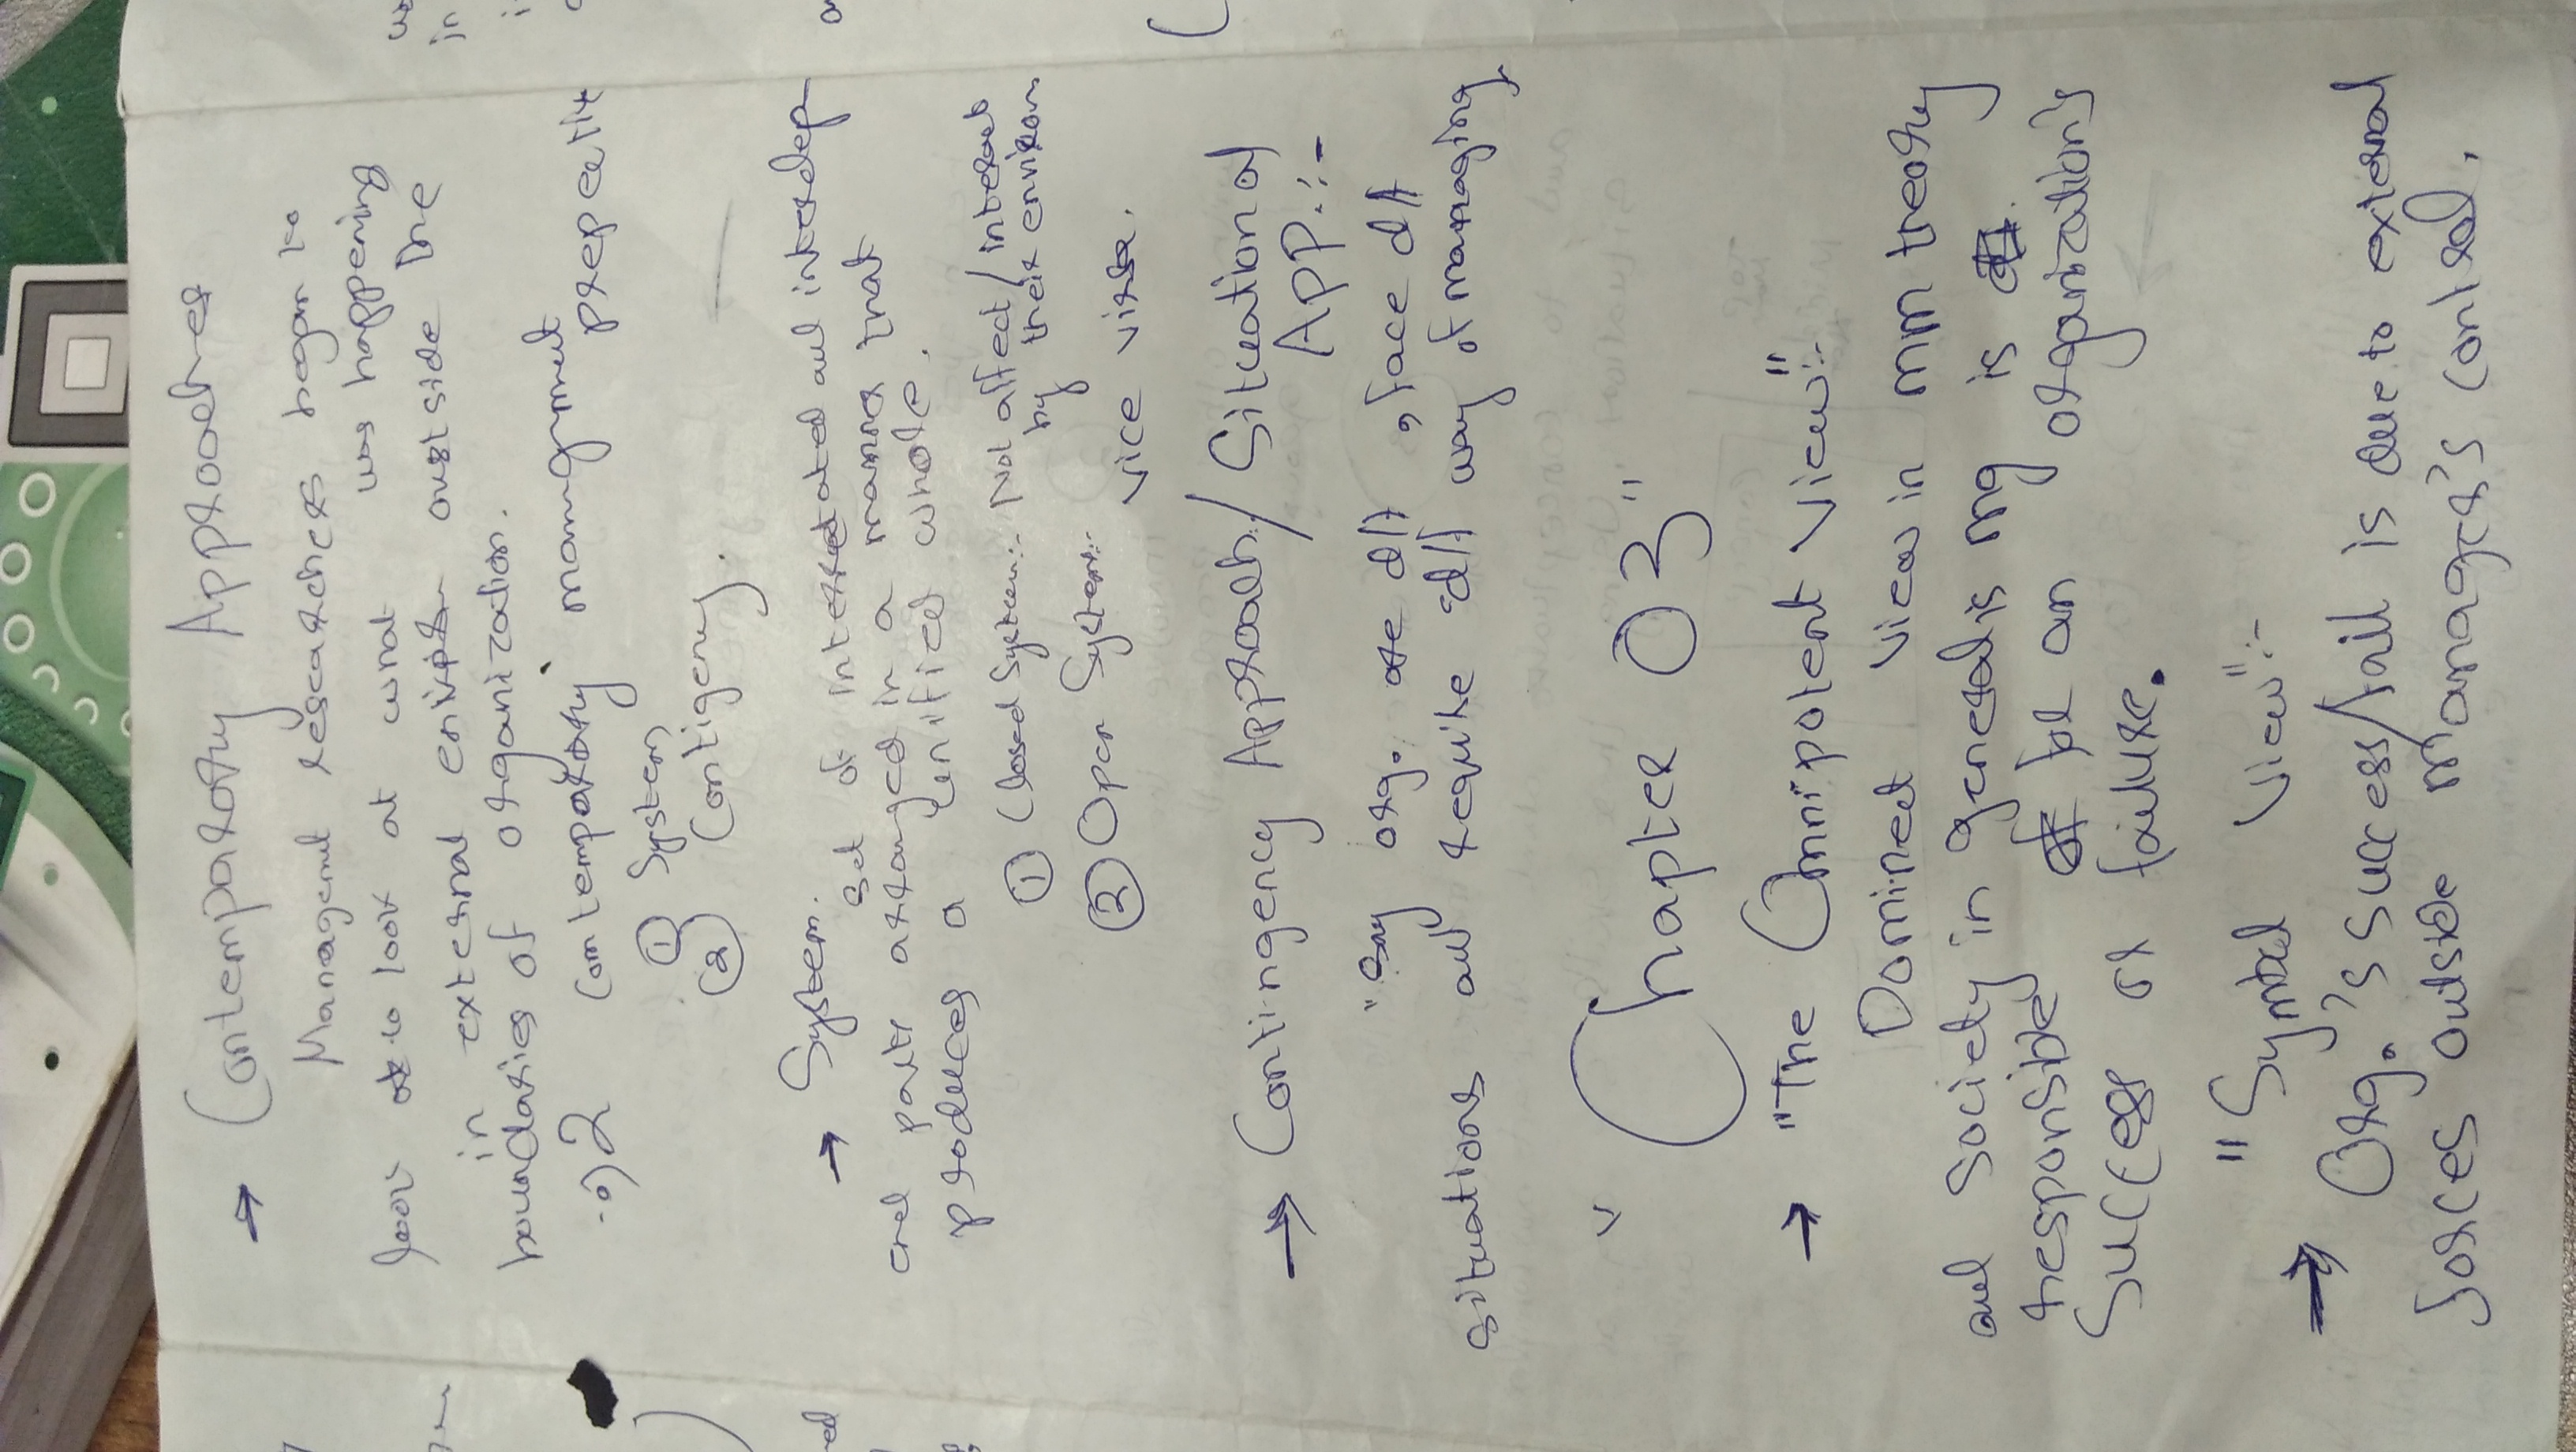 → Contemparory Approaches
Managemt researchers began to
look at to look at what was happening
in external envir outside the
boundaries of organization.
2 Contemporary managment prepective
① System
② Contigency.
→ System.
set of interretated and interdep
end parts arranged in a manner that
produces a unified whole.
① Closed System:- Not affect/interact
by their environ
② Open System:-
vice virsa.
→ Contingency Approach/Situational
App.:-
"Say org. are d/f, face d/f
situations and require d/f way of managing
"Chapter 03"
→ "The Omnipotent View":-
Dominect view in mm theory
and society in general is mg is
responsible of for an organization's
Success or failure.
"Symbol View":-
→
Org.'s success/fail is due to external
forces outside manager's control.